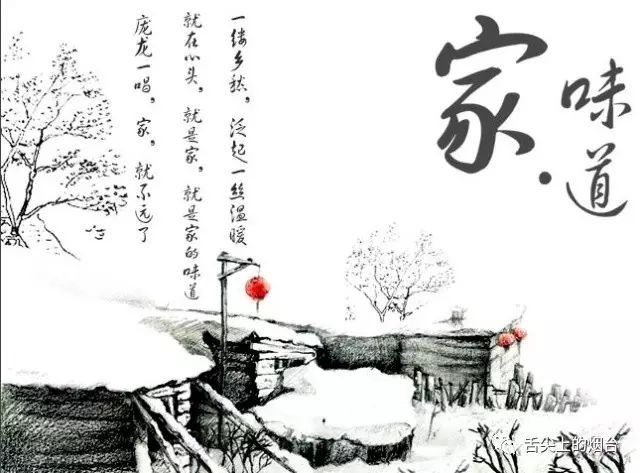 家·
味道
一缕乡愁，泛起一丝温暖
就在心头，就是家，就是家的味道
庞龙一唱，家，就不远了
舌尖上的烟台